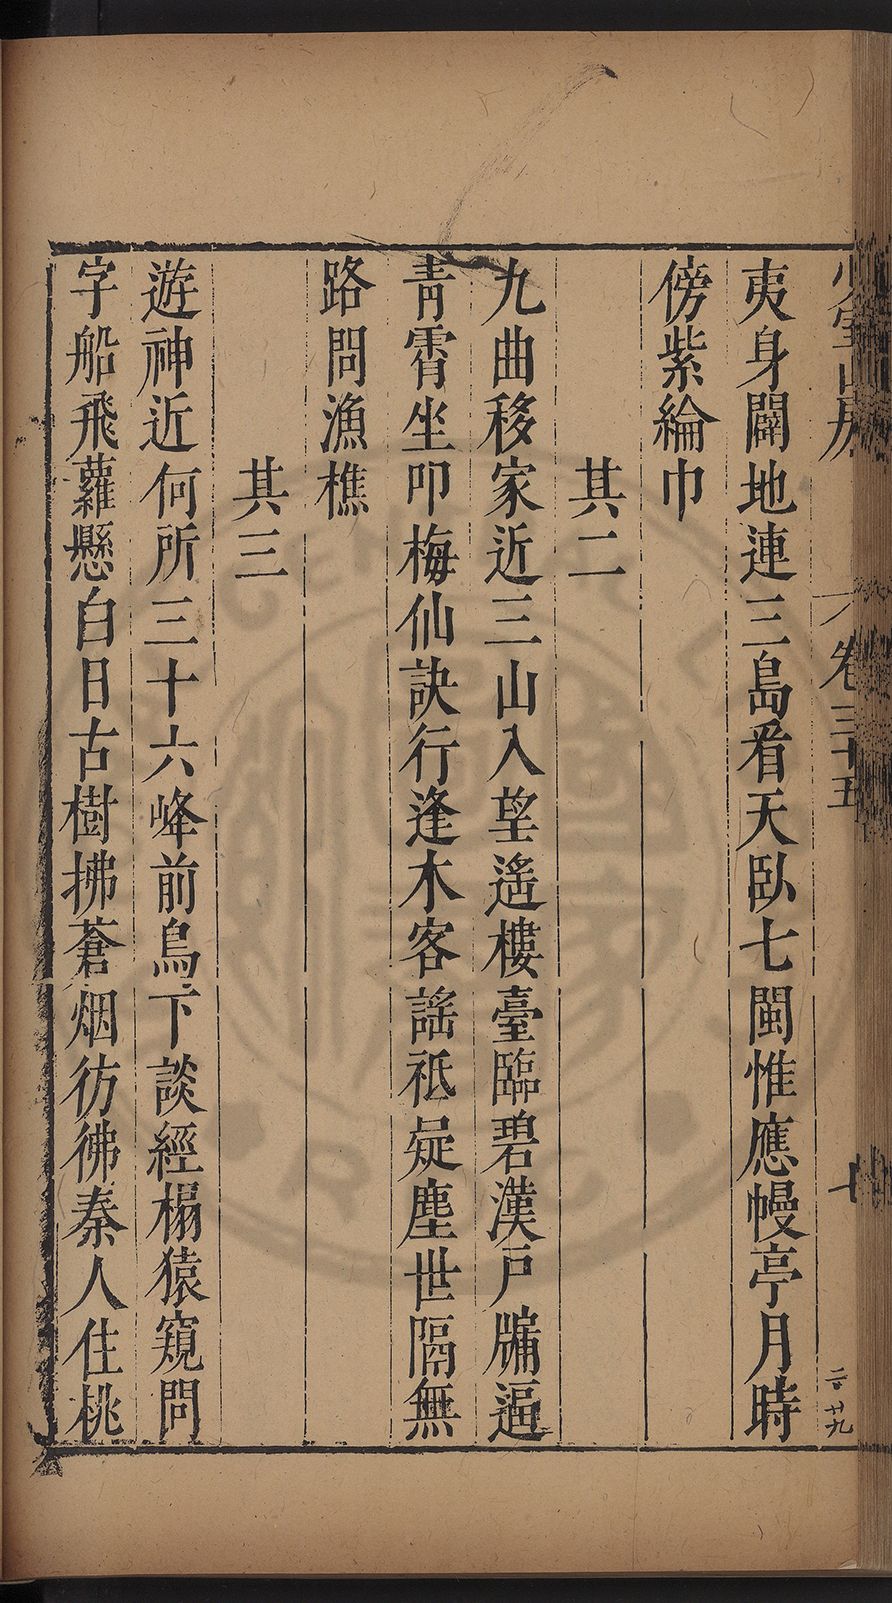 少室山房 卷三十五 十 二 廿九
夷身闢地連三島看天臥七閩惟應幔亭月時
傍紫綸巾
其二
九曲移家近三山入望遙樓臺臨碧漢戶牖逼
青霄坐叩梅仙訣行逢木客謠祗疑塵世隔無
路問漁樵
其三
遊神近何所三十六峰前鳥下談經榻猿窺問
字船飛蘿懸白日古樹拂蒼烟彷彿秦人住桃